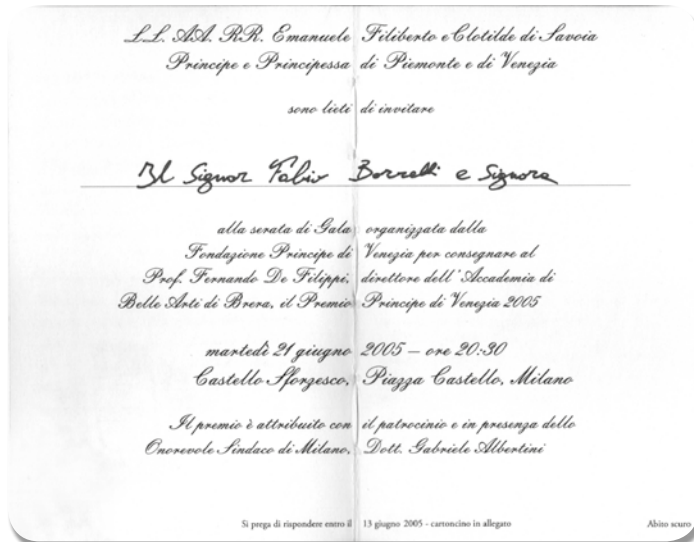 LL. AA. RR. Emanuele Filiberto e Clotilde di Savoia
Principe e Principessa di Piemonte e di Venezia
sono lieti di invitare
Il Signor Fabio Borrelli e Signora
alla serata di Gala organizzata dalla
Fondazione Principe di Venezia per consegnare al
Prof. Fernando De Filippi, direttore dell'Accademia di
Belle Arti di Brera, il Premio Principe di Venezia 2005
martedì 21 giugno 2005 – ore 20:30
Castello Sforzesco, Piazza Castello, Milano
Il premio è attribuito con il patrocinio e in presenza dello
Onorevole Sindaco di Milano, Dott. Gabriele Albertini
Si prega di rispondere entro il 13 giugno 2005 - cartoncino in allegato Abito scuro